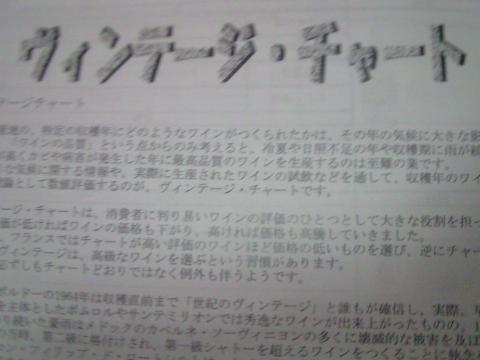 ヴィンテージ・チャート
ージチャート
産地の、特定の収穫年にどのようなワインがつくられたかは、その年の気候に大きな影
「ワインの品質」という点からのみ考えると、冷夏や日照不足の年や収穫期に雨が続
が高くカビや病害が発生した年に最高品質のワインを生産するのは至難の業です。
な気候に関する情報や、実際に生産されたワインの試飲などを通して、収穫年のワイ
論として数値評価するのが、ヴィンテージ・チャートです。
ージ・チャートは、消費者に判り易いワインの評価のひとつとして大きな役割を担っ
価が低ければワインの価格も下がり、高ければ価格も高騰していきました。
フランスではチャートが高い評価のワインほど価格の低いものを選び、逆にチャー
ヴィンテージは、高級なワインを選ぶという習慣があります。
必ずしもチャートどおりではなく例外も伴うようです。
ボルドーの1964年は収穫直前まで「世紀のヴィンテージ」と誰もが確信し、実際、
を主体としたポムロルやサンテミリオンでは秀逸なワインが出来上がったものの、
り続いた豪雨はメドックのカベルネ・ソーヴィニヨンの多くに壊滅的な被害を及ぼ
当時、第二級に格付けされ、第一級シャトーを超えるワインをつくることに